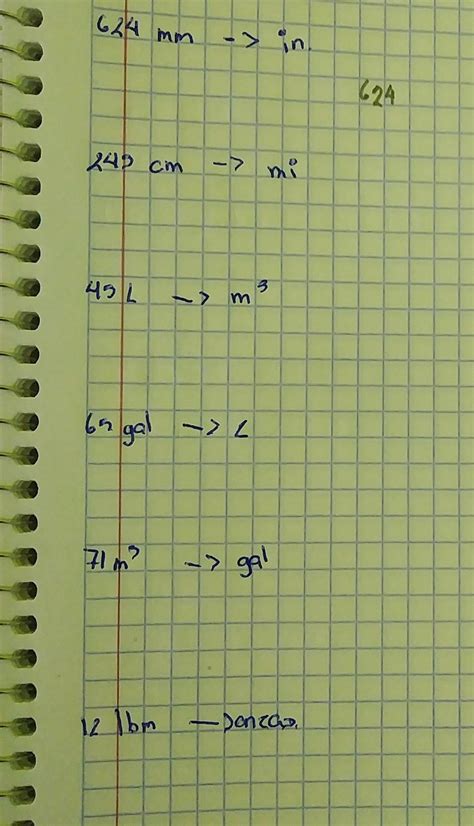 624 mm -> in.
624
245 cm -> mi
45 L -> m³
65 gal -> L
71 m³ -> gal
12 lbm -> onzas.